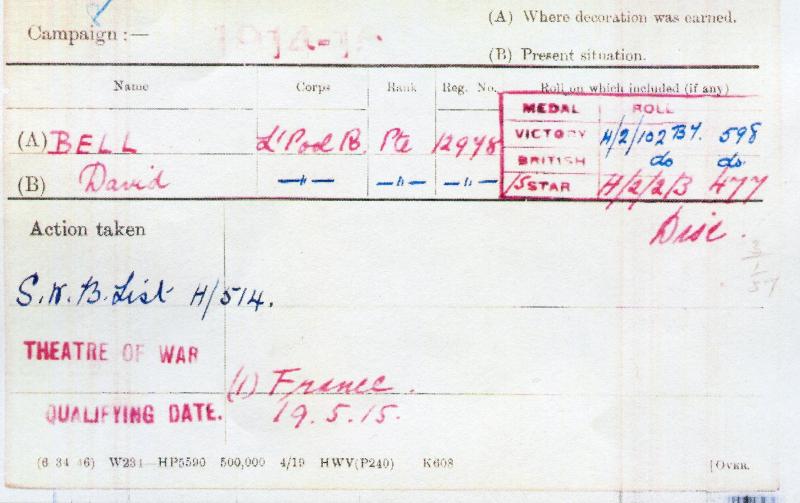 (A) Where decoration was earned.
Campaign :— 1914-15
(B) Present situation.
Name Corps Rank Reg. No. Roll on which included (if any)
MEDAL ROLL
(A) BELL L'Pool R. Pte 12978 VICTORY H/2/102 B7. 598
BRITISH do do.
(B) David —"— —"— —"— 15 STAR H/2/2/B 477
Action taken Disc.
S.W.B. List H/514.
THEATRE OF WAR (1) France.
QUALIFYING DATE. 19.5.15.
(6 34 46) W234—HP5590 500,000 4/19 HWV(P240) K608 [OVER.